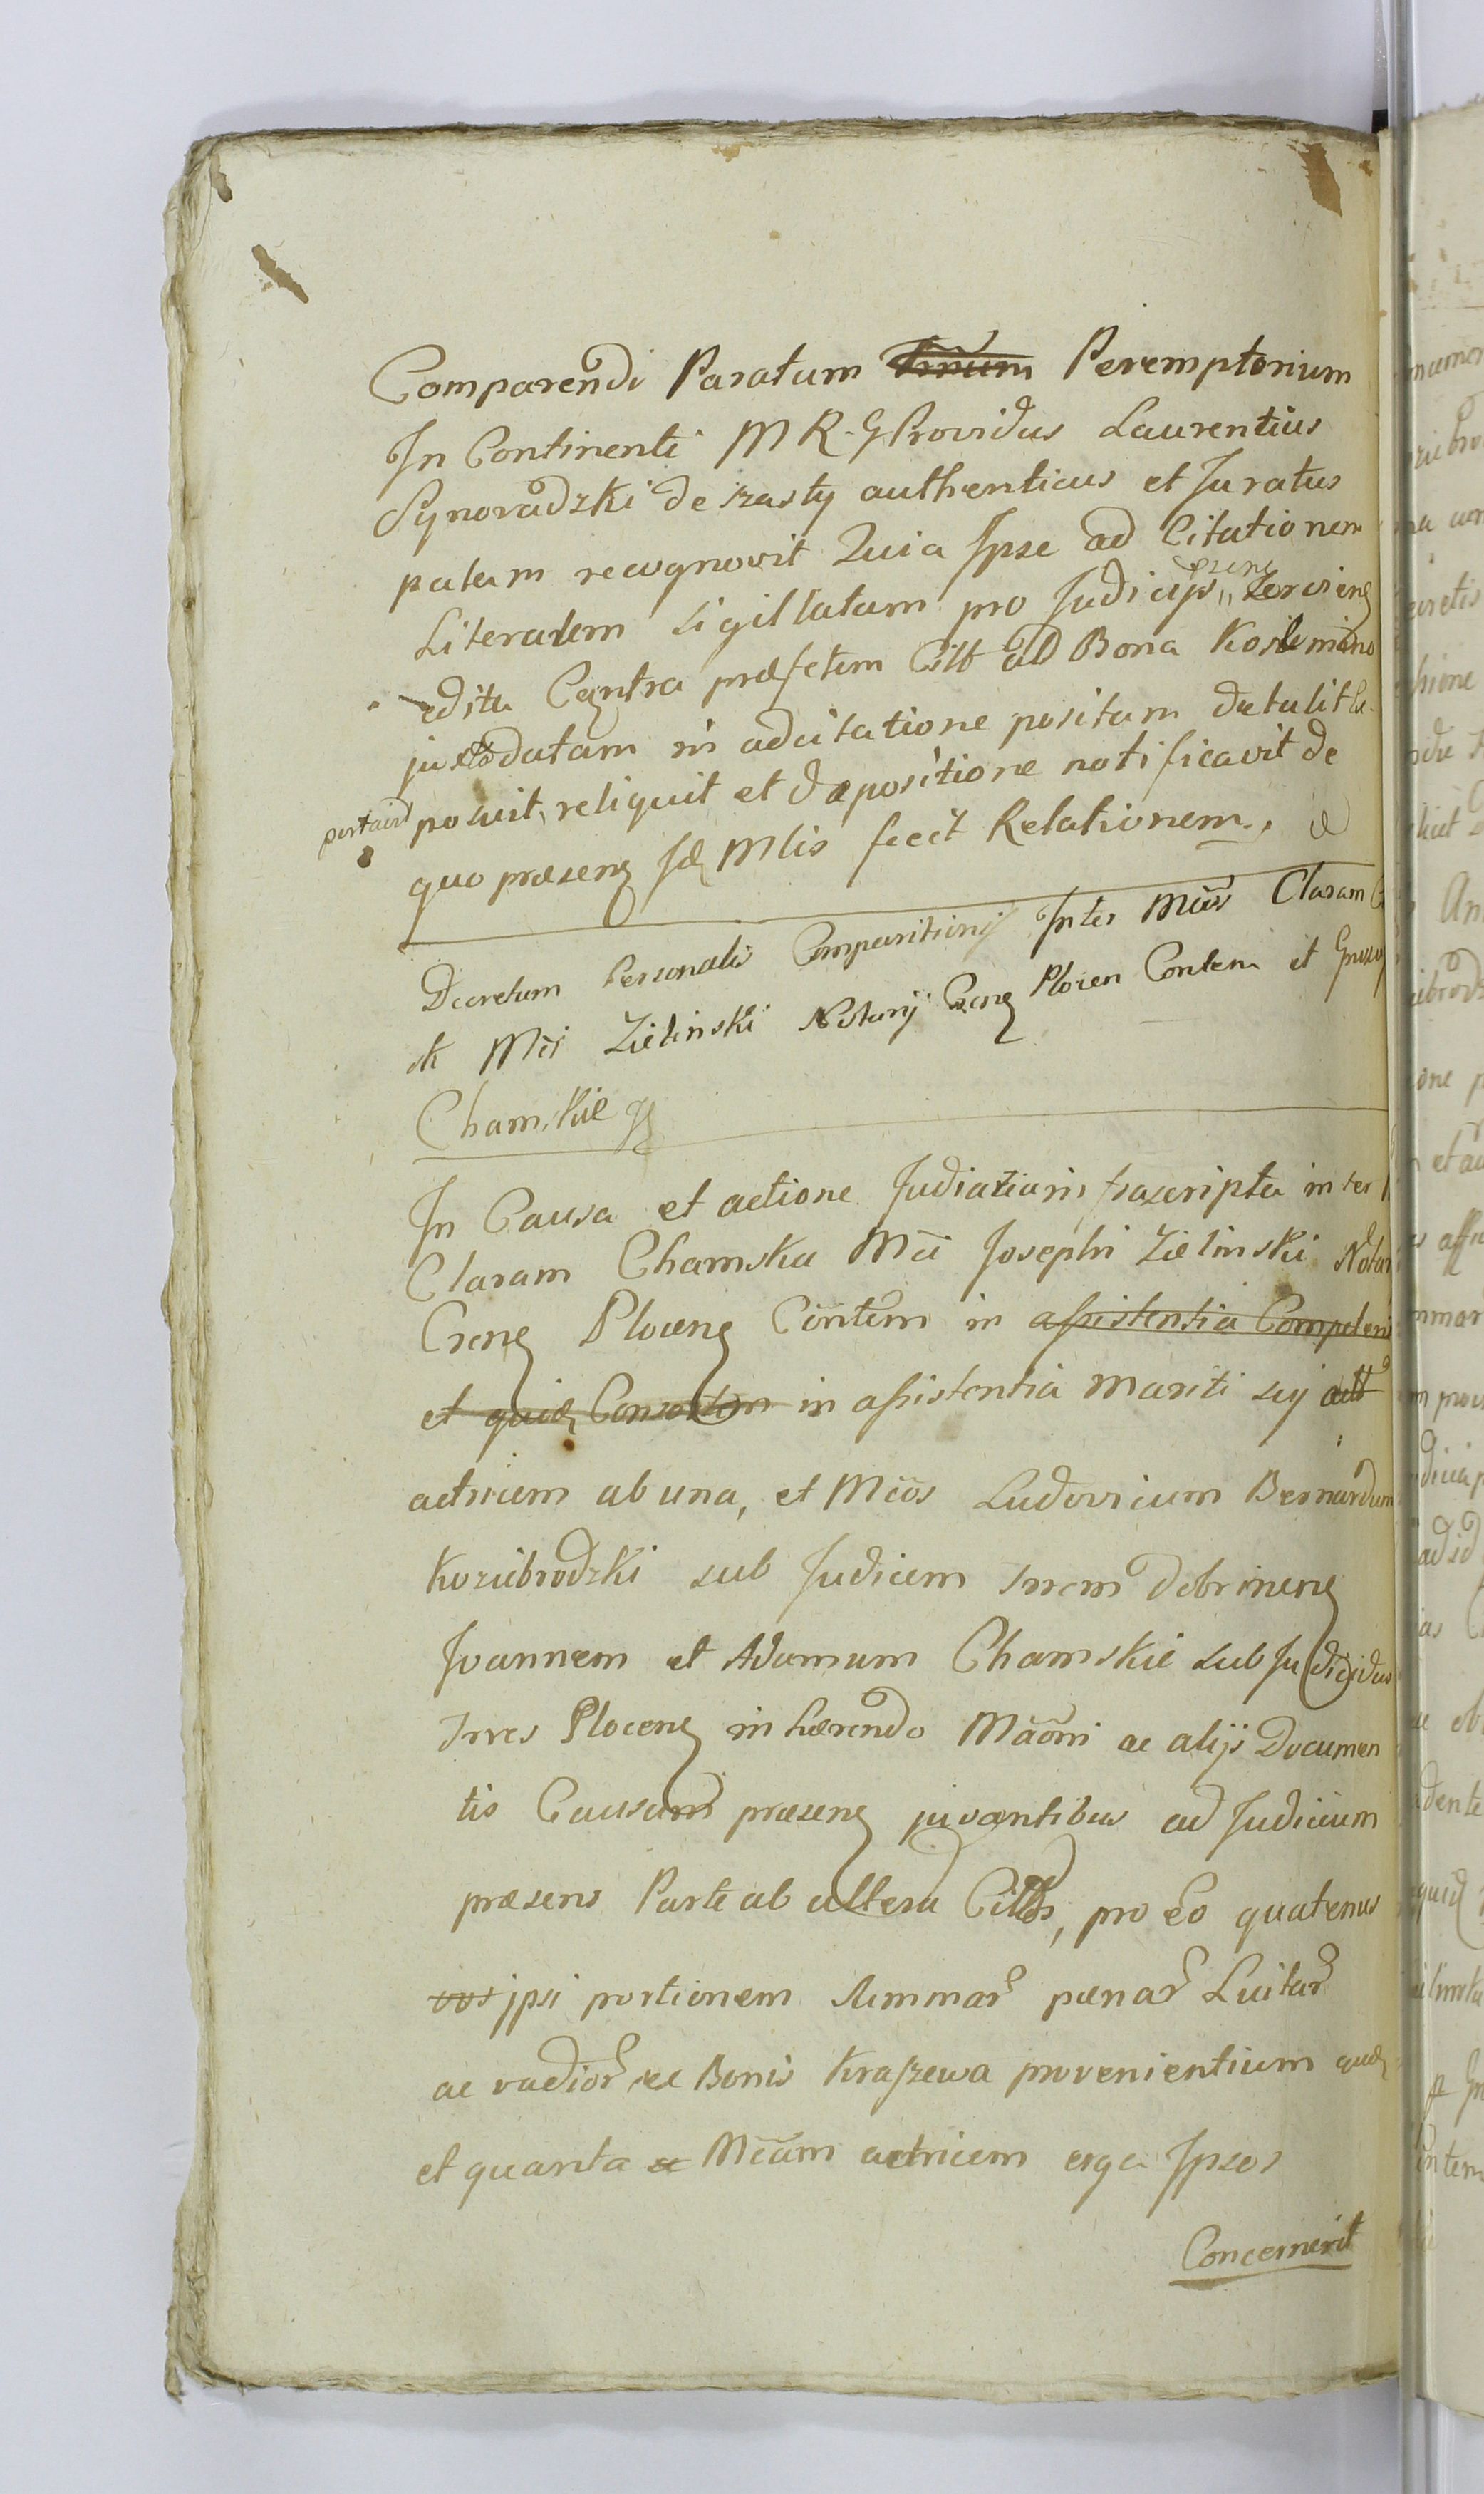 Comparendi Paratum Peremptorium
In Continenti M R G Providus Laurentius
Synoradzki de szasty authenticus et Juratus
palam recognovit Quia Ipse ad Citationem
Literalem sigillatam pro Judicijs
edita Contra Citt ad Bona
juxta datam in adcitatione positam detulit
posuit, reliquit et de positione notificavit de
quo præsens Mlis fecit Relationem.
Decretum Personalis Comparitionis Inter Mcos Claram
Mci Zielinski Notarij Crens Plocen Contem et
Chamskie
In Causa et actione Judiciariis inter
Claram Chamska Mci Josephi Zielinski Notar
Crens Plocens Contem in assistentia Competen
et Consortem in assistentia Mariti sui
actricem ab una, et Mcos Ludovicum Bernardum
Koziebrodzki sub Judicem Trrem Dobrinens
Joannem et Adamum Chamskie sub Judicidus
Trres Plocens inhærendo ac alijs Documen
tis Causam præsens juvantibus ad Judicium
præsens Parte ab altera Cittos, pro eo quatenus
vos ipsi portionem summar pænar Luitar
ac vadior ex Bonis Kraszewa provenientium quæ
et quanta Mcam actricem erga Ipsos
Concernerit